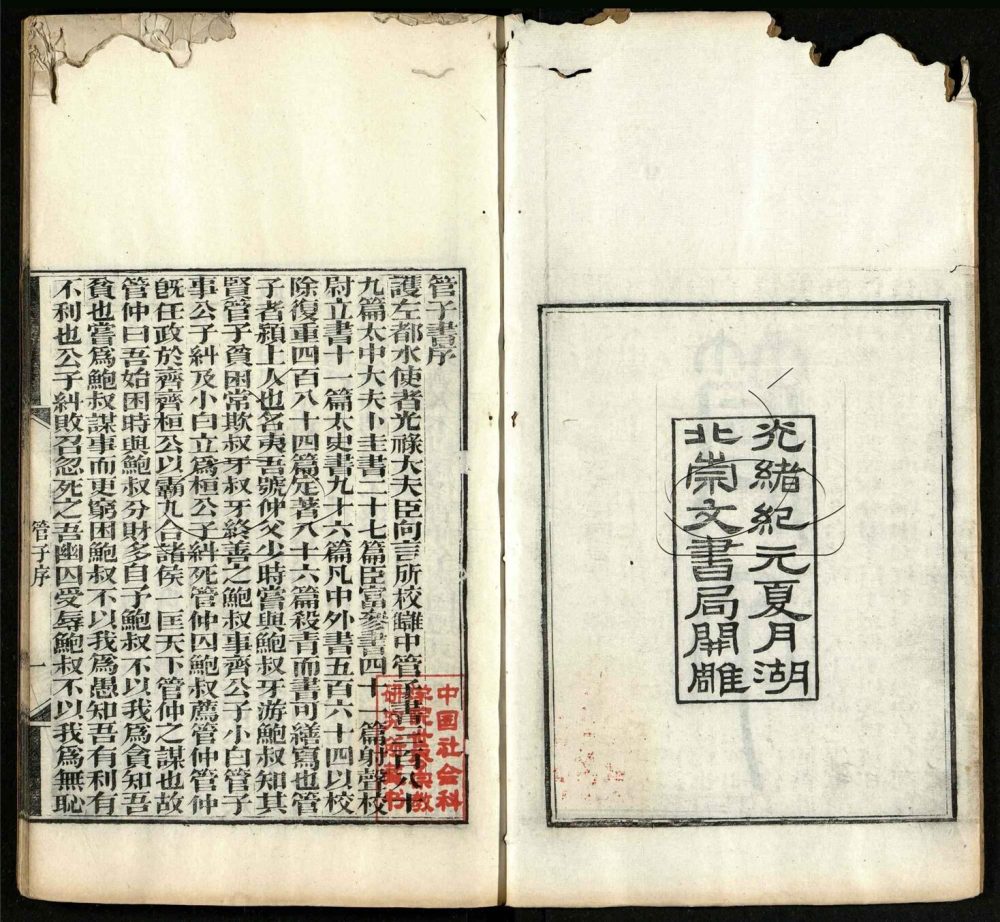 光緒紀元夏月湖
北崇文書局開雕
管子書序
護左都水使者光祿大夫臣向言所校讎中管子書三百八十
九篇太中大夫卜圭書二十七篇臣富參書四十一篇射聲校
尉立書十一篇太史書九十六篇凡中外書五百六十四以校
除復重四百八十四篇定著八十六篇殺青而書可繕寫也管
子者潁上人也名夷吾號仲父少時嘗與鮑叔牙游鮑叔知其
賢管子貧困常欺叔牙叔牙終善之鮑叔事齊公子小白管子
事公子糾及小白立爲桓公子糾死管仲囚鮑叔薦管仲管仲
旣任政於齊齊桓公以霸九合諸侯一匡天下管仲之謀也故
管仲曰吾始困時與鮑叔分財多自予鮑叔不以我爲貪知吾
貧也嘗爲鮑叔謀事而更窮困鮑叔不以我爲愚知吾有利有
不利也公子糾敗召忽死之吾幽囚受辱鮑叔不以我爲無恥
管子序 一
中国社会科
学院世界宗教
研究所藏书